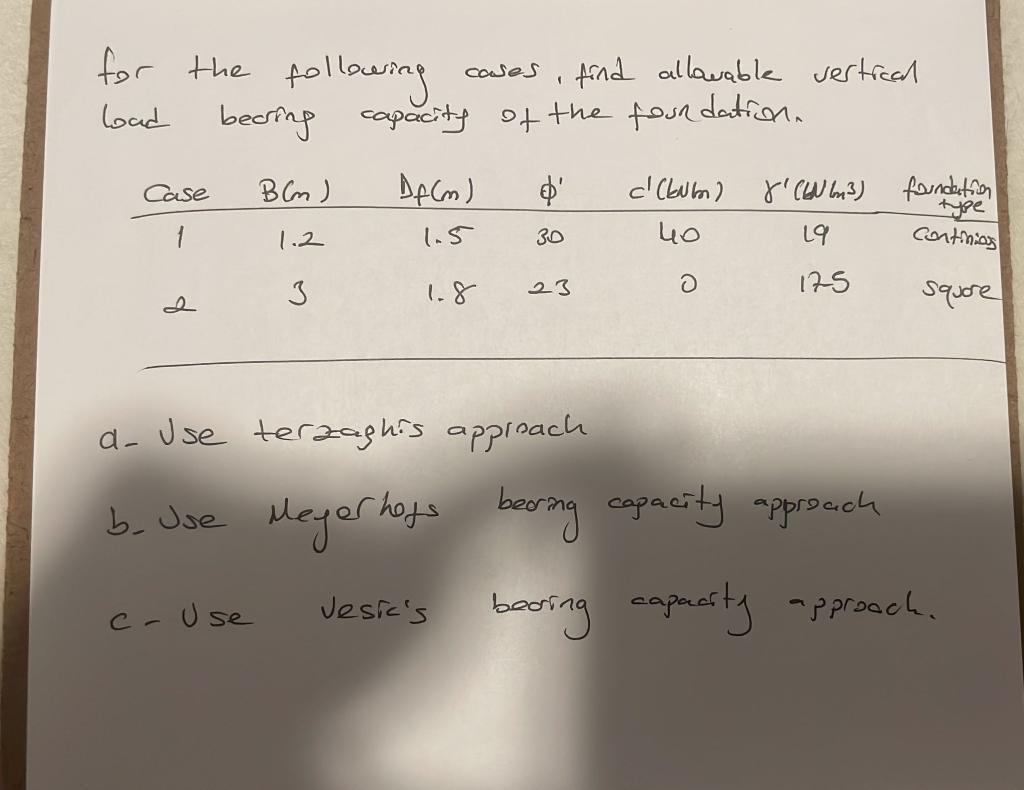 for the following cases, find allowable vertical
load bearing capacity of the foundation.
Case B(m) Df(m) φ' c'(kN/m) γ'(kN/m3) foundation type
1 1.2 1.5 30 40 19 Continios
2 3 1.8 23 0 175 square
a- Use terzaghis approach
b- Use Meyerhofs bearing capacity approach
c- Use Vesic's bearing capacity approach.